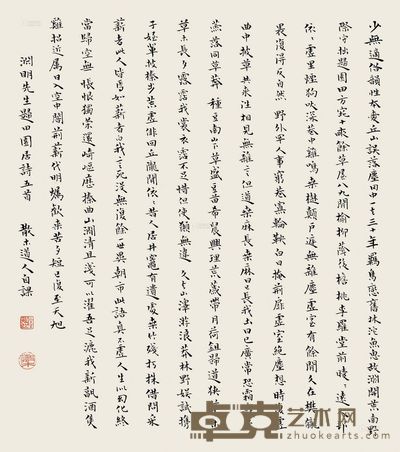 少無適俗韻性本愛丘山誤落塵网中一去三十年羈鳥戀舊林池魚思故淵開荒南野
際守拙歸園田方宅十畝餘草屋八九間榆柳蔭後檐桃李羅堂前曖曖遠人邨
依依虛里煙狗吠深巷中雞鳴桑樹顛戶庭無雜塵虛室有餘閒久在樊籠
裏復得反自然 野外罕人事窮巷寡輪鞅白日掩荊扉虛室絕塵想時復墟
曲中披草共來往相見無雜言但道桑麻長桑麻日已長我土日已廣常恐霜霰
至零落同草莽 種豆南山下草盛豆苗稀晨興理荒穢帶月荷鋤歸道狹草
木長夕露霑我衣衣霑不足惜但使願無違 久去山澤游浪莽林野娛試攜
子姪輩披榛步荒墟徘徊丘隴間依依昔人居井竈有遺處桑竹殘朽株借問采
薪者此人皆焉如薪者向我言死沒無復餘一世異朝市此語真不虛人生似幻化終
當歸空無 悵恨獨策還崎嶇歷榛曲山澗清且淺可以濯吾足漉我新熟酒隻
雞招近屬日入室中闇荊薪代明燭歡來苦夕短已復至天旭
淵明先生歸田園居詩五首 散木道人自課
卓克艺术网
zhuokearts.com